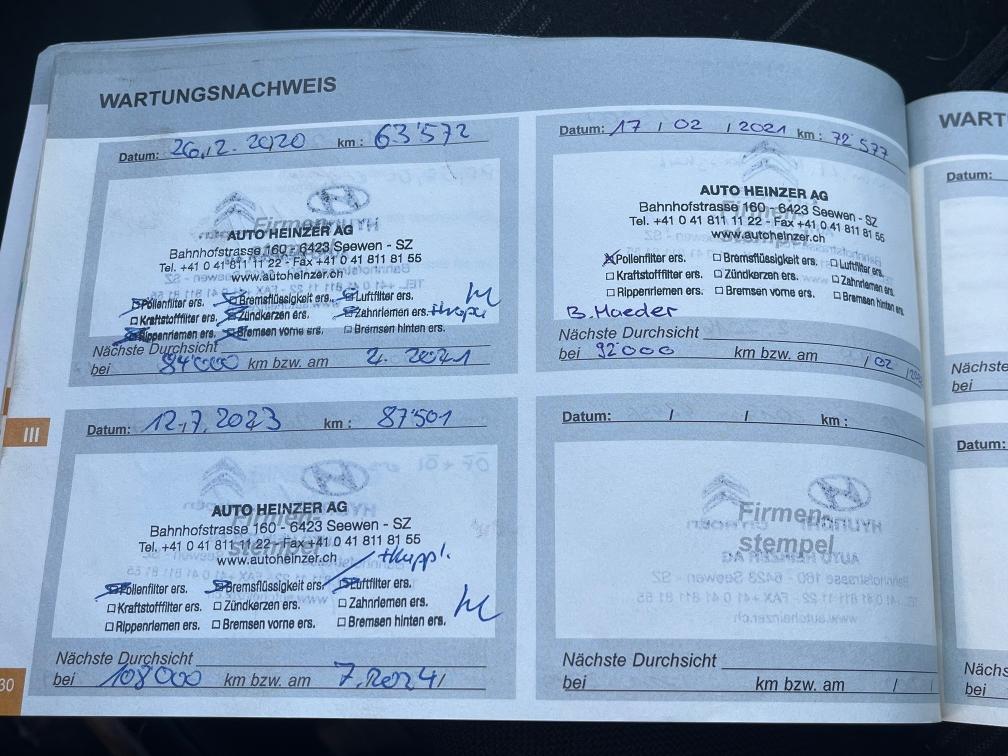 WARTUNGSNACHWEIS
Datum: 26.2.2020 km: 63'572
Firmen
AUTO HEINZER AG
Bahnhofstrasse 160 - 6423 Seewen - SZ
Tel. +41 0 41 811 11 22 - Fax +41 0 41 811 81 55
www.autoheinzer.ch
Pollenfilter ers. Bremsflüssigkeit ers. Luftfilter ers.
Kraftstofffilter ers. Zündkerzen ers. Zahnriemen ers.
Rippenriemen ers. Bremsen vorne ers. Bremsen hinten ers.
Nächste Durchsicht
bei 84'000 km bzw. am 2. 2021
Datum: 17 / 02 / 2021 km: 72'577
Firmen
AUTO HEINZER AG
Bahnhofstrasse 160 - 6423 Seewen - SZ
Tel. +41 0 41 811 11 22 - Fax +41 0 41 811 81 55
stempel
www.autoheinzer.ch
Pollenfilter ers. Bremsflüssigkeit ers. Luftfilter ers.
Kraftstofffilter ers. Zündkerzen ers. Zahnriemen ers.
Rippenriemen ers. Bremsen vorne ers. Bremsen hinten ers.
B. Maeder
Nächste Durchsicht
bei 92'000 km bzw. am / 02 /
III
Datum: 12.7.2023 km: 87'501
Firmen
AUTO HEINZER AG
Bahnhofstrasse 160 - 6423 Seewen - SZ
Tel. +41 0 41 811 11 22 - Fax +41 0 41 811 81 55
stempel
www.autoheinzer.ch +Kuppl.
Pollenfilter ers. Bremsflüssigkeit ers. Luftfilter ers.
Kraftstofffilter ers. Zündkerzen ers. Zahnriemen ers.
Rippenriemen ers. Bremsen vorne ers. Bremsen hinten ers.
Nächste Durchsicht
bei 108'000 km bzw. am 7.2024/
30
Datum: / / km:
Firmen
stempel
Nächste Durchsicht
bei km bzw. am / /
WART
Datum:
Nächste
bei
Datum:
Nächs
bei